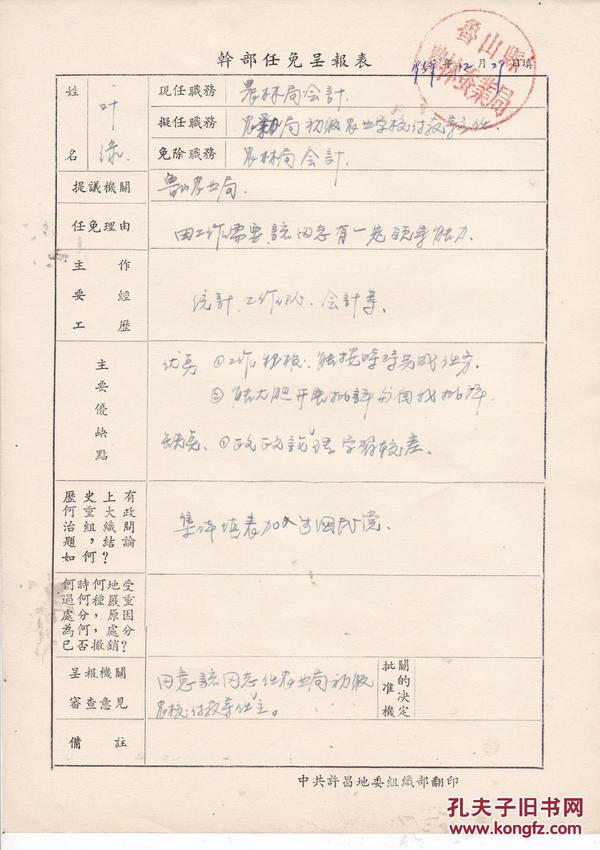 幹部任免呈報表
魯山縣
農林蚕業局
1959年12月29日填
姓名
叶
现任職務 農林局会計.
擬任職務 农業局初級农业学校付教导主任
免除職務 農林局会計.
提議機關 魯山农业局.
任免理由 因工作需要,該同志有一定领导能力.
主要工作經歷 统計、工作队、会計等.
主要優缺點
优奌 ①工作积极,能按時完成任务.
②能大胆开展批評与自我批评.
缺奌、①政 理 学習較差.
歷史上有何重大政治組織問題,結論如何?
集体填表加入过國民党.
何時何地受過何種嚴重處分,原因為何,處分已否撤銷?
呈報機關審查意見
同意該同志任农业局初級
农校付教导任主。
批准機關的决定
備註
中共許昌地委組織部翻印
孔夫子旧书网
www.kongfz.com